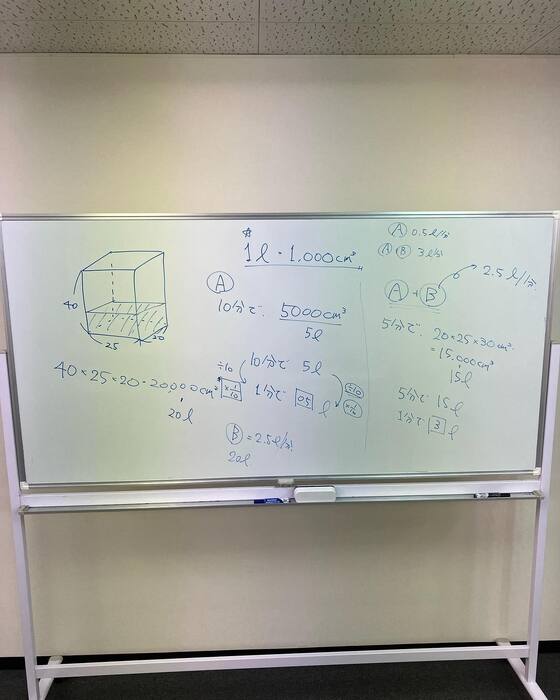 ☆
1ℓ = 1,000cm³
40
25
20
40×25×20=20,000cm³
20ℓ
Ⓐ
10分で 5000cm³
5ℓ
÷10
×1/10
10分で 5ℓ
1分で 0.5 ℓ
÷10
×1/10
Ⓑ = 2.5ℓ/分
20ℓ
Ⓐ 0.5ℓ/分
Ⓐ Ⓑ 3ℓ/分
Ⓐ+Ⓑ
2.5ℓ/分
5分で 20×25×30cm³
=15,000cm³
15ℓ
5分で 15ℓ
1分で 3 ℓ